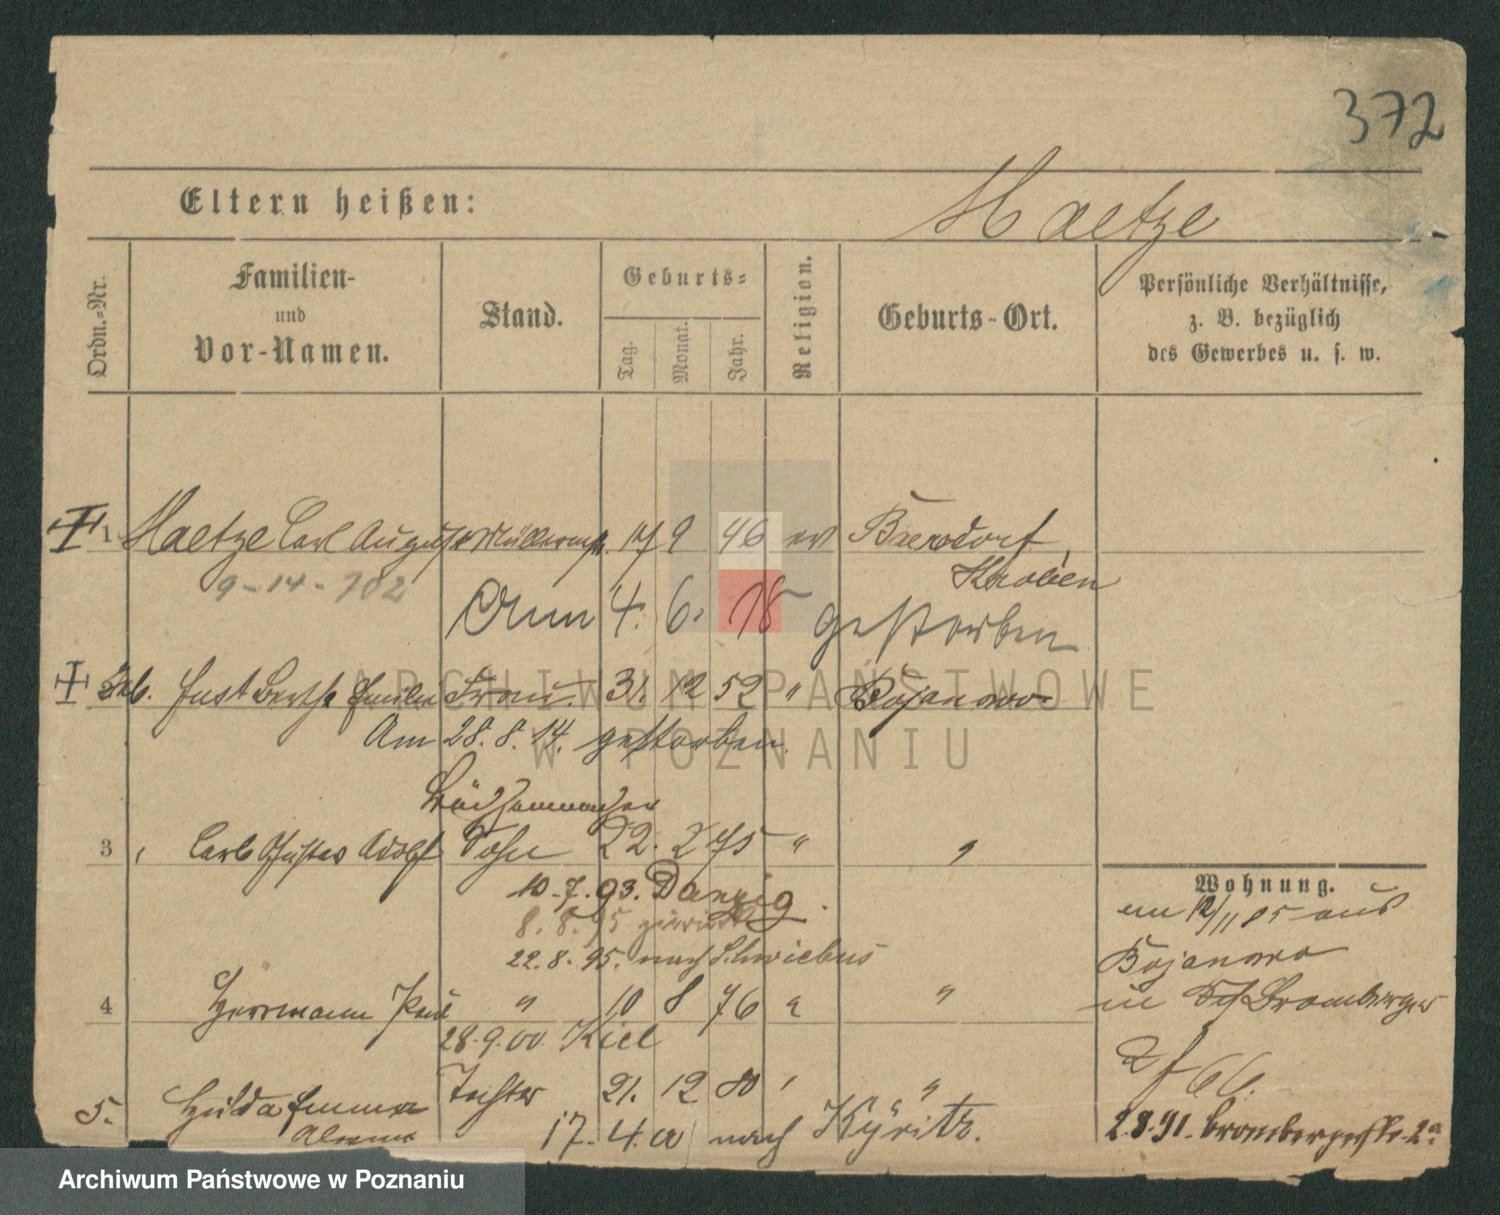 372
Eltern heißen:
Maetze
Ordn.-Nr.
Familien-
und
Vor-Namen.
Stand.
Geburts-
Tag.
Monat.
Jahr.
Religion.
Geburts-Ort.
Persönliche Verhältnisse,
z. B. bezüglich
des Gewerbes u. s. w.
1 Maetze Carl August Müllermstr. 17 9 46 ev Baersdorf,
Kroeben
9-14-702
Am 4. 6. 18 gestorben
Geb. Just Bertha Emilie Frau 31. 12 52 " Bojanowo
Am 28. 8. 14. gestorben.
Büchsenmacher
3 Carl Gustav Adolf Sohn 22. 2 75 " "
10.7.93. Danzig.
8.8.95 zurück
22.8.95. nach Schwiebus
4 Herrmann Paul " 10 8 76 " "
28.9.00. Kiel
5. Hulda Emma Tochter 21. 12 80 " "
17.4.00 nach Kyritz.
Wohnung.
am 12/11 85 aus
Bojanowo
in Bromberger
66.
2.8.91. Brombergerstr. 2a
ARCHIWUM PAŃSTWOWE
W POZNANIU
Archiwum Państwowe w Poznaniu